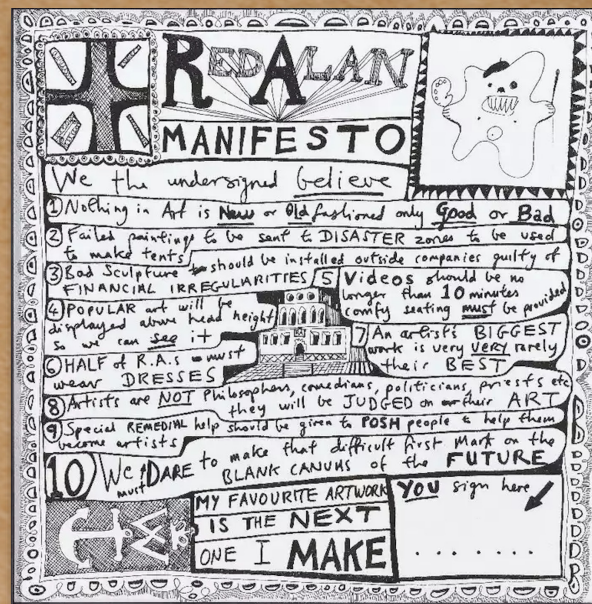 RED ALAN
MANIFESTO
We the undersigned believe
① Nothing in Art is New or Old fashioned only Good or Bad
② Failed paintings to be sent to DISASTER zones to be used
to make tents
③ Bad Sculpture should be installed outside companies guilty of
FINANCIAL IRREGULARITIES
④ POPULAR art will be
displayed above head height
so we can see it
5 Videos should be no
longer than 10 minutes
comfy seating must be provided
⑥ HALF of R.A.s must
wear DRESSES
7 An artist's BIGGEST
work is very VERY rarely
their BEST
⑧ Artists are NOT Philosophers, comedians, politicians, priests etc
they will be JUDGED on their ART
⑨ Special REMEDIAL help should be given to POSH people to help them
become artists
10 We must DARE to make that difficult first Mark on the
BLANK CANVAS of the FUTURE
MY FAVOURITE ARTWORK
IS THE NEXT
ONE I MAKE
YOU sign here
........